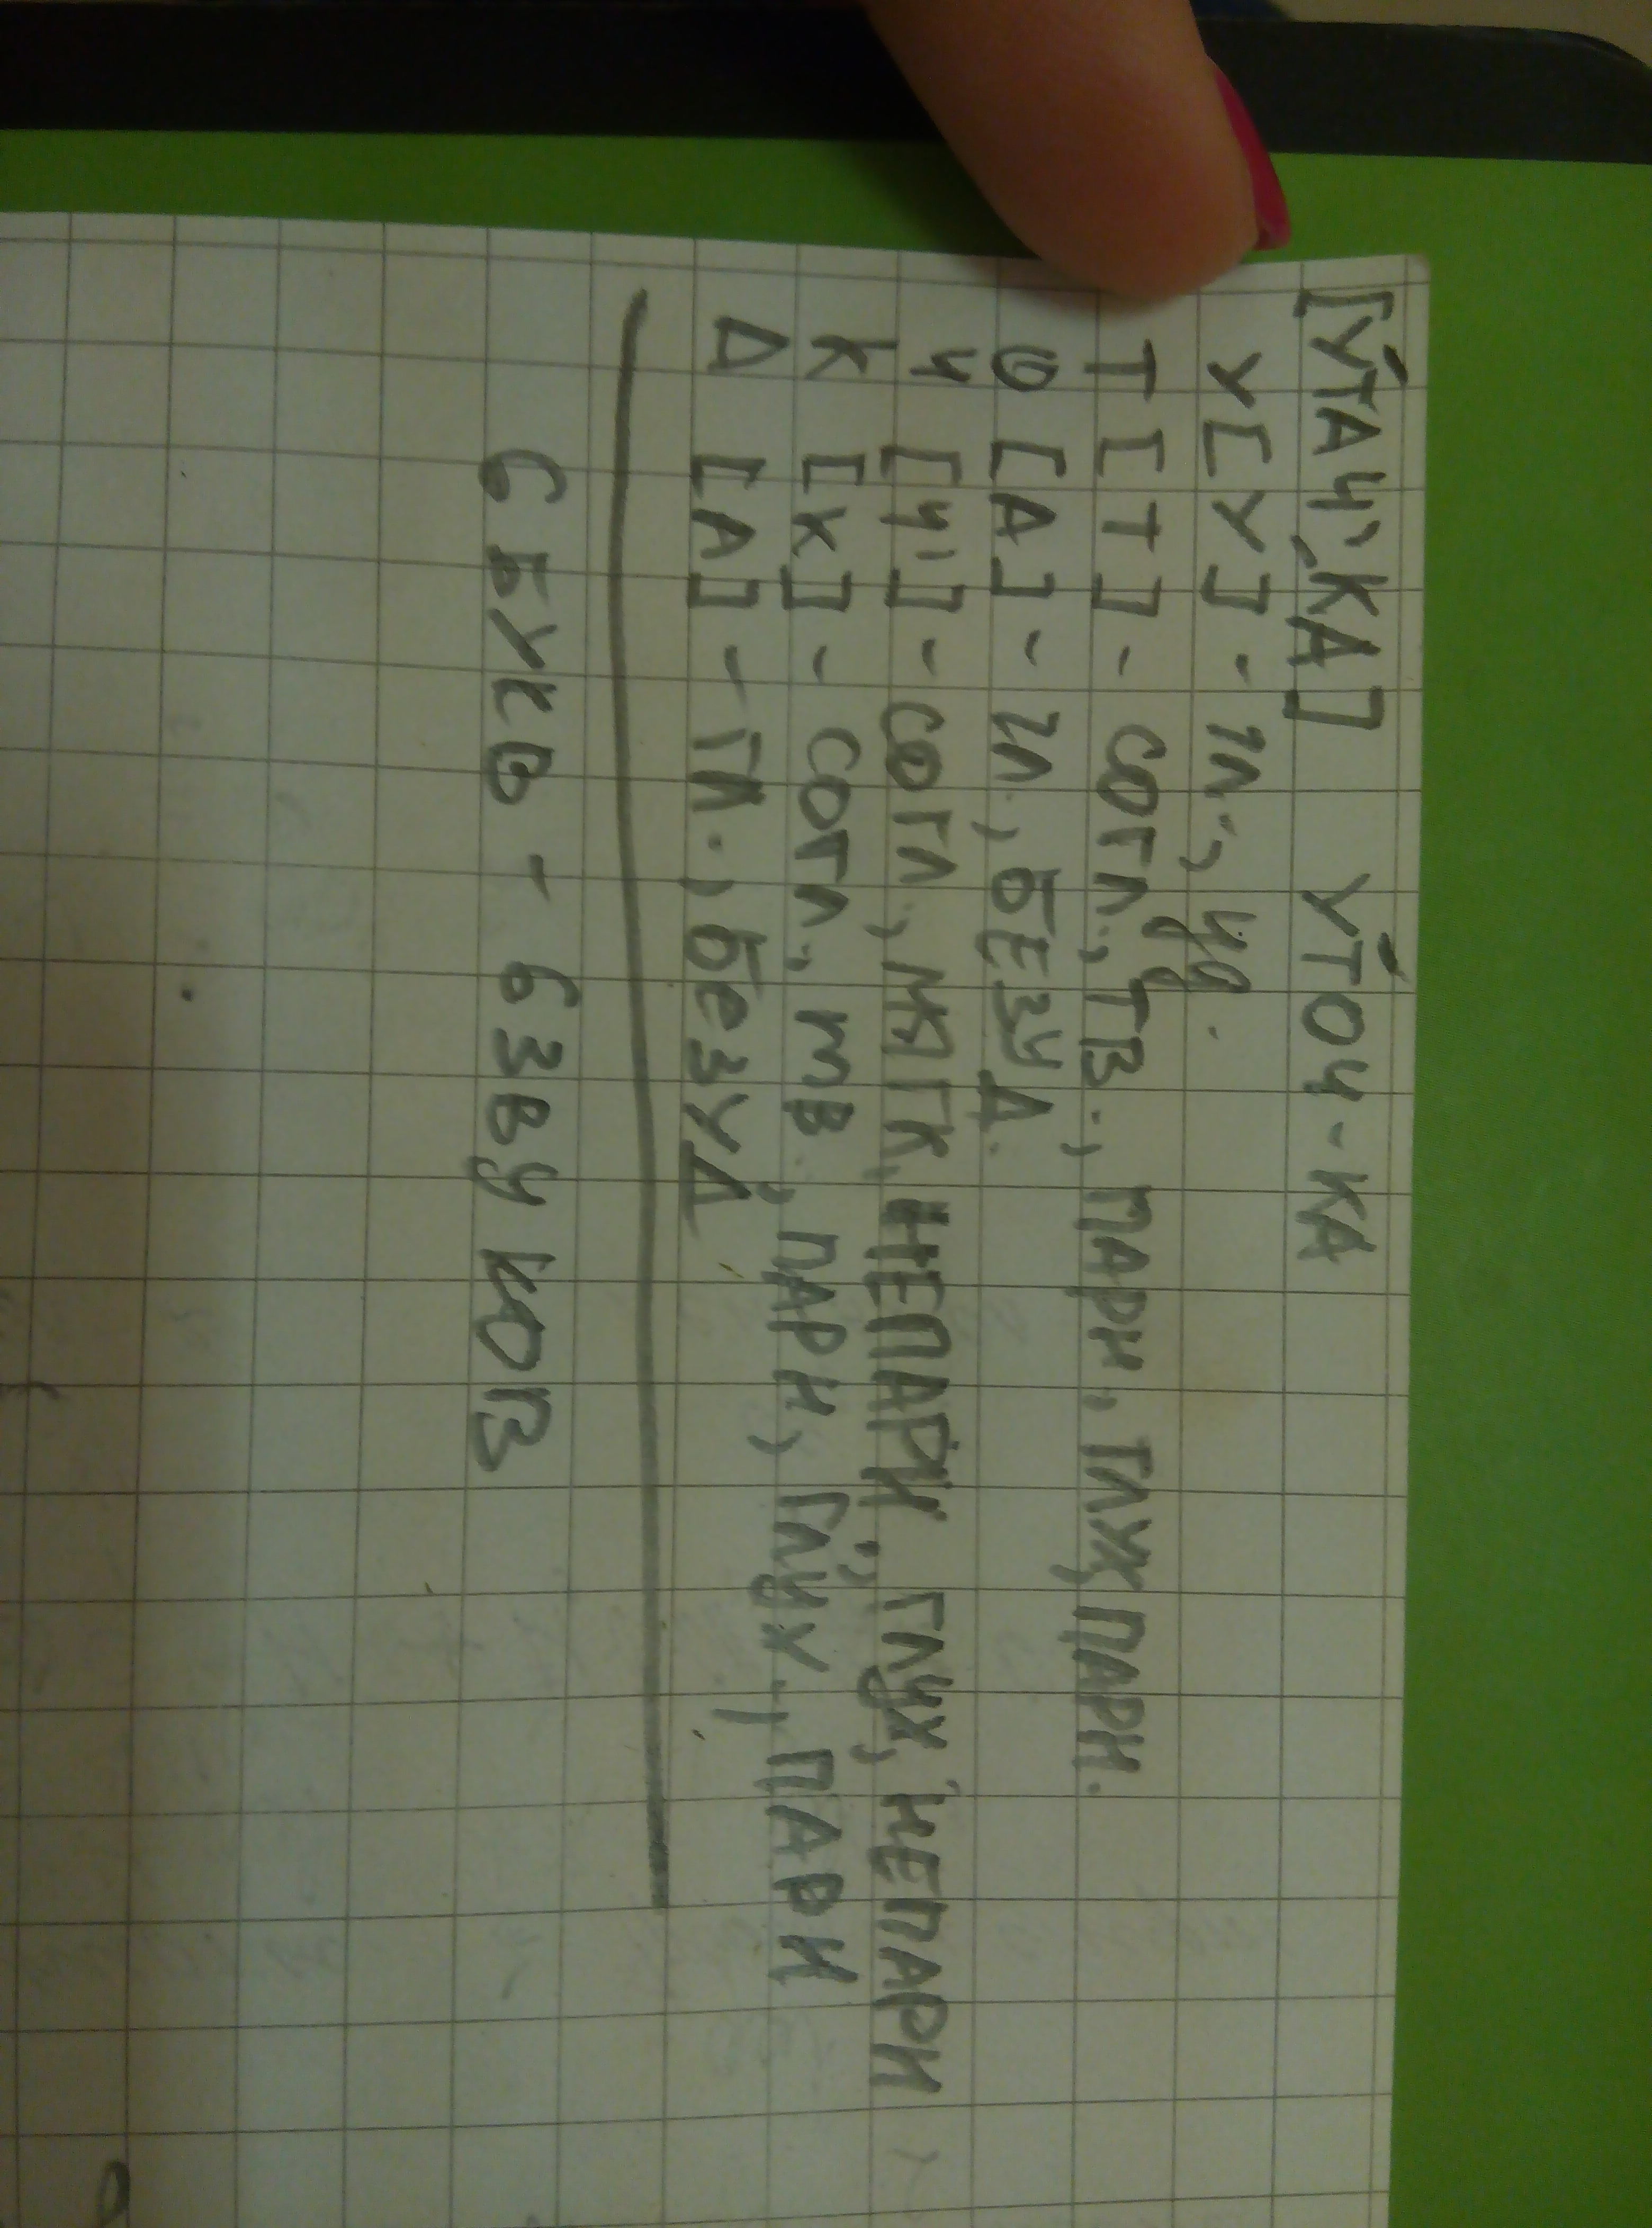 [У́ТАЧ'-КА] У́ТОЧ-КА
У[У]-гл., уд.
Т [Т] - согл., ТВ., ПАРН., ГЛУХ, ПАРН.
О [А] - гл., БЕЗУД.
Ч [Ч'] - согл., МЯГК, НЕПАРН., глух, НЕПАРН
К [К] - согл., тв., ПАРН, ГЛУХ., ПАРН
А [А] - ГЛ., безуд
6 БУКВ - 6 ЗВУКОВ